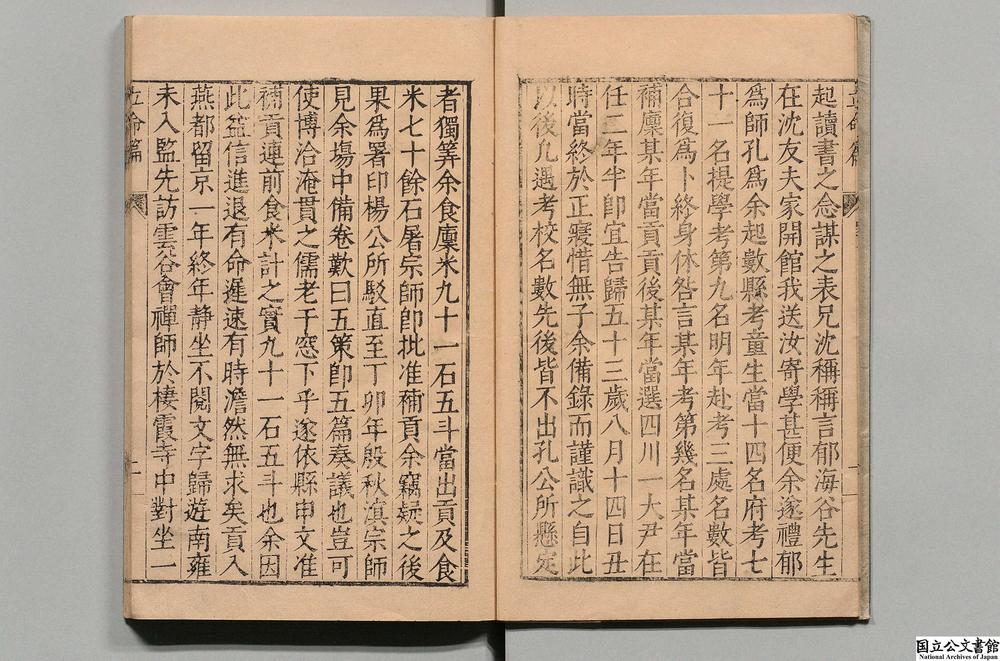 起讀書之念謀之表兄沈稱稱言郁海谷先生
在沈友夫家開館我送汝寄學甚便余遂禮郁
爲師孔爲余起數縣考童生當十四名府考七
十一名提學考第九名明年赴考三處名數皆
合復爲卜終身休咎言某年考第幾名某年當
補廩某年當貢貢後某年當選四川一大尹在
任二年半卽宜告歸五十三歲八月十四日丑
時當終於正寢惜無子余備錄而謹識之自此
以後凡遇考校名數先後皆不出孔公所懸定
者獨筭余食廩米九十一石五斗當出貢及食
米七十餘石屠宗師卽批准補貢余竊疑之後
果爲署印楊公所駁直至丁卯年殷秋溟宗師
見余場中備卷歎曰五策卽五篇奏議也豈可
使博洽淹貫之儒老于窓下乎遂依縣申文准
補貢連前食米計之實九十一石五斗也余因
此益信進退有命遲速有時澹然無求矣貢入
燕都留京一年終年静坐不閱文字歸遊南雍
未入監先訪雲谷會禪師於棲霞寺中對坐一
立命篇
國立公文書館
National Archives of Japan